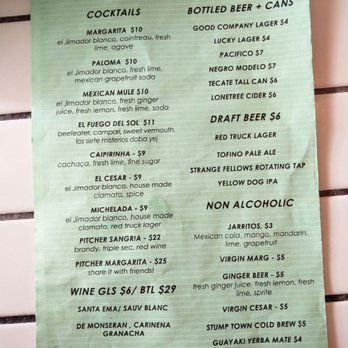 COCKTAILS
MARGARITA $10
el Jimador blanco, cointreau, fresh
lime, agave
PALOMA $10
el Jimador blanco, fresh lime,
mexican grapefruit soda
MEXICAN MULE $10
el Jimador blanco, fresh ginger
juice, fresh lemon, fresh lime, soda
EL FUEGO DEL SOL $11
beefeater, campari, sweet vermouth,
los siete misterios doba yej
CAIPIRINHA - $9
cachaça, fresh lime, fine sugar
EL CESAR - $9
el Jimador blanco, house made
clamato, spice
MICHELADA - $9
el Jimador blanco, house made
clamato, red truck lager
PITCHER SANGRIA - $22
brandy, triple sec, red wine
PITCHER MARGARITA - $25
share it with friends!
WINE GLS $6/ BTL $29
SANTA EMA/ SAUV BLANC
DE MONSERAN , CARINENA
GRANACHA
BOTTLED BEER + CANS
GOOD COMPANY LAGER $4
LUCKY LAGER $4
PACIFICO $7
NEGRO MODELO $7
TECATE TALL CAN $6
LONETREE CIDER $6
DRAFT BEER $6
RED TRUCK LAGER
TOFINO PALE ALE
STRANGE FELLOWS ROTATING TAP
YELLOW DOG IPA
NON ALCOHOLIC
JARRITOS, $3
Mexican cola, mango, mandarin,
lime, grapefruit
VIRGIN MARG - $5
GINGER BEER - $5
fresh ginger juice, fresh lemon, fresh
lime, sprite
VIRGIN CESAR - $5
STUMP TOWN COLD BREW $5
GUAYAKI YERBA MATE $4